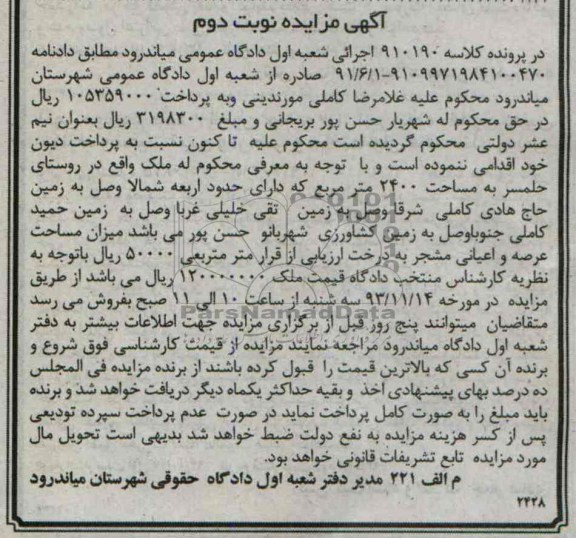 آگهی مزایده نوبت دوم
در پرونده کلاسه ۹۱۰۱۹۰ اجرائی شعبه اول دادگاه عمومی میاندرود مطابق دادنامه
۹۱/۶/۱-۹۱۰۹۹۷۱۹۸۴۱۰۰۴۷۰ صادره از شعبه اول دادگاه عمومی شهرستان
میاندرود محکوم علیه غلامرضا کاملی مورندینی وبه پرداخت ۱۰۵۳۵۹۰۰۰ ریال
در حق محکوم له شهریار حسن پور بریجانی و مبلغ ۳۱۹۸۳۰۰ ریال بعنوان نیم
عشر دولتی محکوم گردیده است محکوم علیه تا کنون نسبت به پرداخت دیون
خود اقدامی ننموده است و با توجه به معرفی محکوم له ملک واقع در روستای
حلمسر به مساحت ۲۴۰۰ متر مربع که دارای حدود اربعه شمالا وصل به زمین
حاج هادی کاملی شرقا وصل به زمین تقی خلیلی غربا وصل به زمین حمید
کاملی جنوباوصل به زمین کشاورزی شهربانو حسن پور می باشد میزان مساحت
عرصه و اعیانی مشجر به درخت ارزیابی از قرار متر مترمربعی ۵۰۰۰۰ ریال باتوجه به
نظریه کارشناس منتخب دادگاه قیمت ملک ۱۲۰۰۰۰۰۰۰ ریال می باشد از طریق
مزایده در مورخه ۹۳/۱۱/۱۴ سه شنبه از ساعت ۱۰ الی ۱۱ صبح بفروش می رسد
متقاضیان میتوانند پنج روز قبل از برگزاری مزایده جهت اطلاعات بیشتر به دفتر
شعبه اول دادگاه میاندرود مراجعه نمایند مزایده از قیمت کارشناسی فوق شروع و
برنده آن کسی که بالاترین قیمت را قبول کرده باشند از برنده مزایده فی المجلس
ده درصد بهای پیشنهادی اخذ و بقیه حداکثر یکماه دیگر دریافت خواهد شد و برنده
باید مبلغ را به صورت کامل پرداخت نماید در صورت عدم پرداخت سپرده تودیعی
پس از کسر هزینه مزایده به نفع دولت ضبط خواهد شد بدیهی است تحویل مال
مورد مزایده تابع تشریفات قانونی خواهد بود.
م الف ۲۲۱ مدیر دفتر شعبه اول دادگاه حقوقی شهرستان میاندرود
۲۴۲۸
ParsNamadData